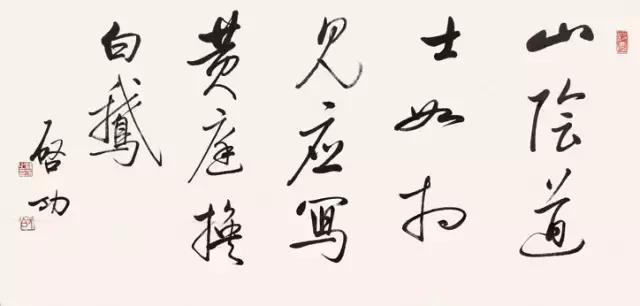 山陰道
士如相
見應寫
黄庭換
白鵝
啓功